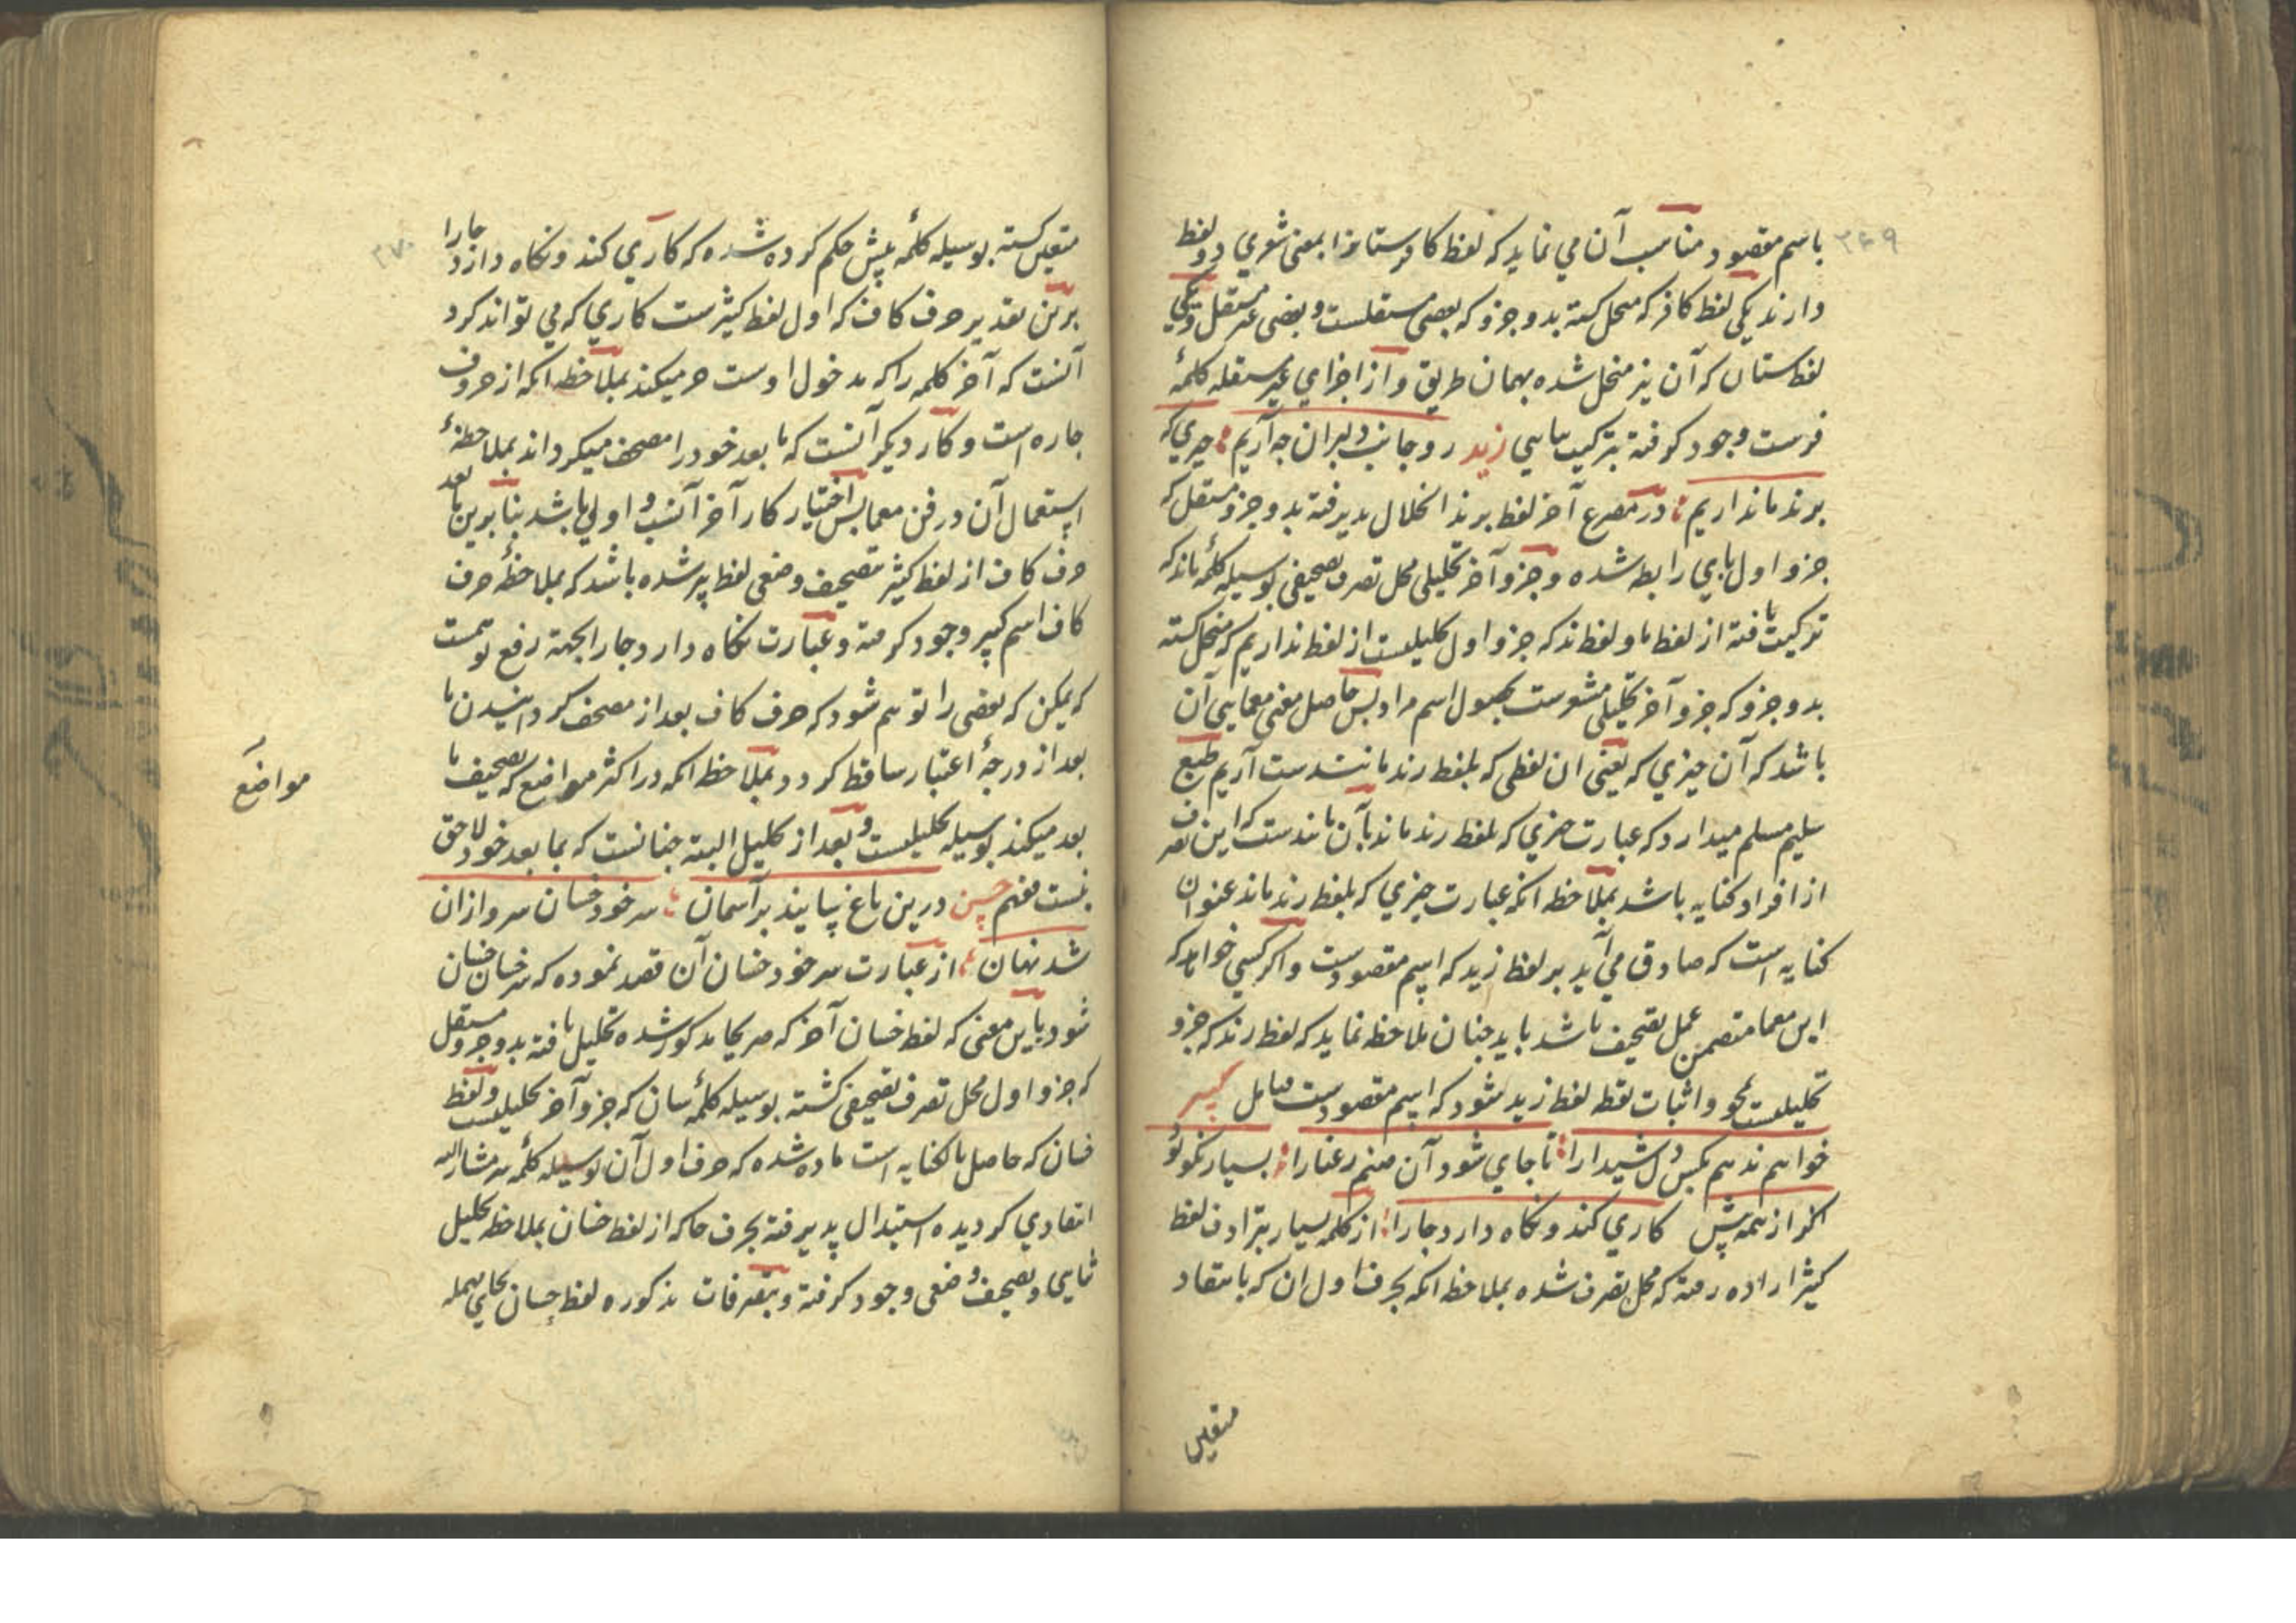 ۳۶۹
باسم مقصود مناسب آن می نماید که لفظ کافرستانرا بمعنی شعری دو لفظ
دارند یکی لفظ کافر که منحل کشته بدو جزو که بعضی مستقلست و بعضی غیر مستقل و یکی
لفظ ستان که آن نیز منحل شده بهمان طریق و از اجزای غیر مستقله کلمهٔ
فرست وجود کرفته بترکیب زید رو جانب دلبران چه آریم چیزی که
برند ماند اریم در مصرع آخر لفظ برند انحلال پذیرفته بدو جزو مستقل که
جزو اول بای رابط شده و جزو آخر تحلیلی محل تصرف تصحیفی بوسیله کلمهٔ ماند که
ترکیب یافته از لفظ ما و لفظ ند که جزو اول تحلیلیست از لفظ نداریم که منحل کشته
بدو جزو که جزو آخر تحلیلی مشعرست بحصول اسم مراد پس حاصل معنی معمایی آن
باشد که آن چیزی که یعنی ان لفظی که بلفظ رند مانندست آریم طبع
سلیم مسلم میدارد که عبارت چیزی که بلفظ رند ماند بآن مانندست که این تصرف
از افراد کنایه باشد بملاحظه انکه عبارت چیزی که بلفظ رند ماند عنوان
کنایه است که صادق می آید بر لفظ زید که اسم مقصودست و اکر کسی خواهد که
این معما متضمن عمل تصحیف باشد باید چنان ملاحظه نماید که لفظ رند که جزو
تحلیلیست بمحو و اثبات نقطه لفظ زید شود که اسم مقصودست
خواهم ندهم بکس دل شیدارا تا جای شود آن صنم رعنارا بسیار نکو تو
از همه پیش کاری کند و نکاه دارد جارا از کلمه بسیار بترادف لفظ
کثیر اراده رفته که محل تصرف شده بملاحظه انکه بحرف اول ان که بانتقاد
متعین
۳۷۰
متعین کشته بوسیله کلمهٔ پیش حکم کرده شده که کاری کند و نکاه دارد جارا
برین تقدیر حرف کاف که اول لفظ کثیرست کاری که می تواند کرد
آنست که آخر کلمه را که مدخول اوست جر میکند بملاحظه انکه از حروف
جاره است و کار دیکر آنست که ما بعد خود را مصحف میکرداند بملاحظهٔ
استعمال آن در فن معما پس اختیار کار آخر آنسب و اولی باشد بنابرین ما بعد
حرف کاف از لفظ کثیر بتصحیف وضعی لفظ بیر شده باشد که بملاحظهٔ حرف
کاف اسم کبیر وجود کرفته و عبارت نکاه دارد جارا بجهة رفع توهمست
که یمکن که بعضی را توهم شود که حرف کاف بعد از مصحف کردانیدن ما
بعد از درجهٔ اعتبار ساقط کردد بملاحظه انکه در اکثر مواضع که تصحیف ما
بعد میکند بوسیله تحلیلست و بعد از تحلیل البته چنانست که بما بعد خود لاحق
نیست حسن درین باغ بر آسمان سر خود خسان سروازان
شد نهان از عبارت سر خود خسان آن قصد نموده که سر خسان خسان
شود باین معنی که لفظ خسان آخر که صریحا مذکور شده تحلیل یافته بدو جزو مستقل
که جزو اول محل تصرف تصحیفی کشته بوسیله کلمهٔ سان که جزو آخر تحلیلیست و لفظ
خسان که حاصل بالکنایه است ماده شده که حرف اول آن بوسیله کلمهٔ سر مشار الیه
انتقادی کردیده استبدال پذیرفته بحرف حا که از لفظ خسان بملاحظه تحلیل
ثنایی و تصحیف وضعی وجود کرفته و بتصرفات مذکوره لفظ حسان بحای مهمله
مواضع